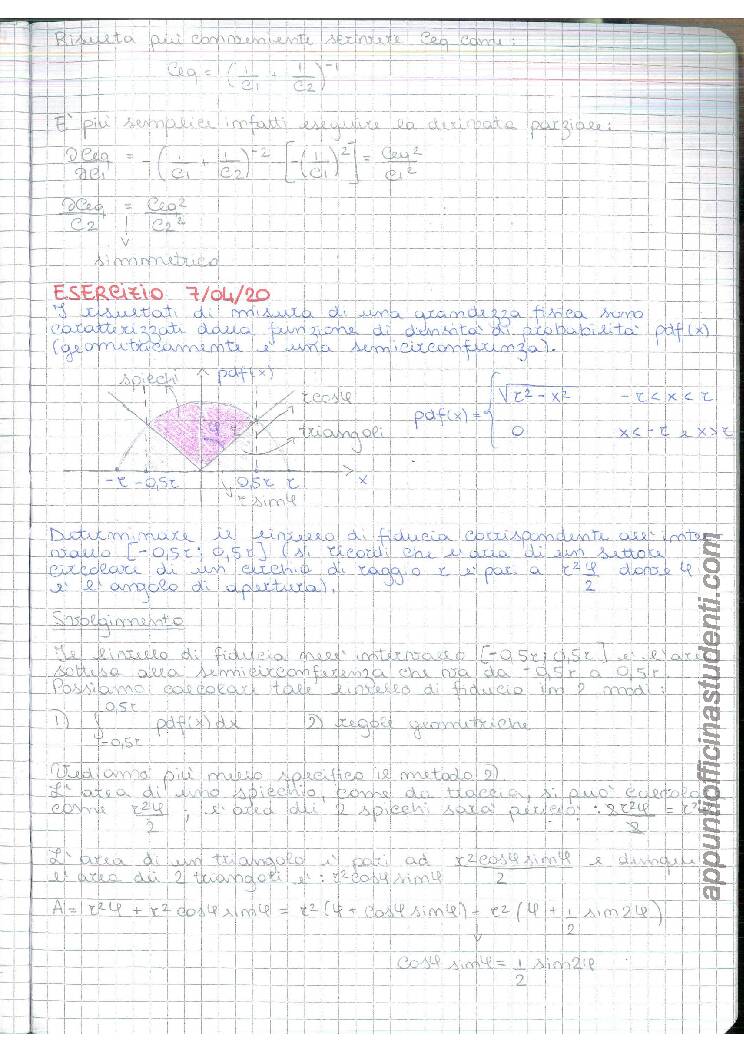 Risulta più conveniente scrivere Ceq come:
Ceq = (1/C1 + 1/C2)^-1
E' più semplice infatti eseguire la derivata parziale:
∂Ceq/∂C1 = -(1/C1 + 1/C2)^-2 [-(1/C1)^2] = Ceq^2/C1^2
∂Ceq/C2 = Ceq^2/C2^2
simmetrico
ESERCIZIO 7/04/20
I risultati di misura di una grandezza fisica sono
caratterizzati dalla funzione di densità di probabilità pdf(x)
(geometricamente è una semicirconferenza).
spicchi pdf(x)
rcosφ
φ r
triangoli
-r -0,5r 0,5r r x
r sinφ
pdf(x) = { √r²-x² -r<x<r
0 x<-r e x>r
Determinare il livello di fiducia corrispondente all'inter
vallo [-0,5r; 0,5r] (si ricordi che l'area di un settore
circolare di un cerchio di raggio r è pari a r²φ/2 dove φ
è l'angolo di apertura).
Svolgimento
Il livello di fiducia nell'intervallo [-0,5r; 0,5r] è l'area
sottesa alla semicirconferenza che va da -0,5r a 0,5r.
Possiamo calcolare tale livello di fiducia in 2 modi:
1) ∫_{-0,5r}^{0,5r} pdf(x)dx 2) regole geometriche
Vediamo più nello specifico il metodo 2)
L'area di uno spicchio, come da traccia, si può calcolare
come r²φ/2, l'area dei 2 spicchi sarà perciò: 2r²φ/2 = r²φ
L'area di un triangolo è pari ad r²cosφsinφ/2 e dunque
l'area dei 2 triangoli è: r²cosφsinφ
A = r²φ + r²cosφsinφ = r²(φ + cosφsinφ) = r²(φ + 1/2 sin2φ)
cosφ sinφ = 1/2 sin2φ
appuntiofficinastudenti.com